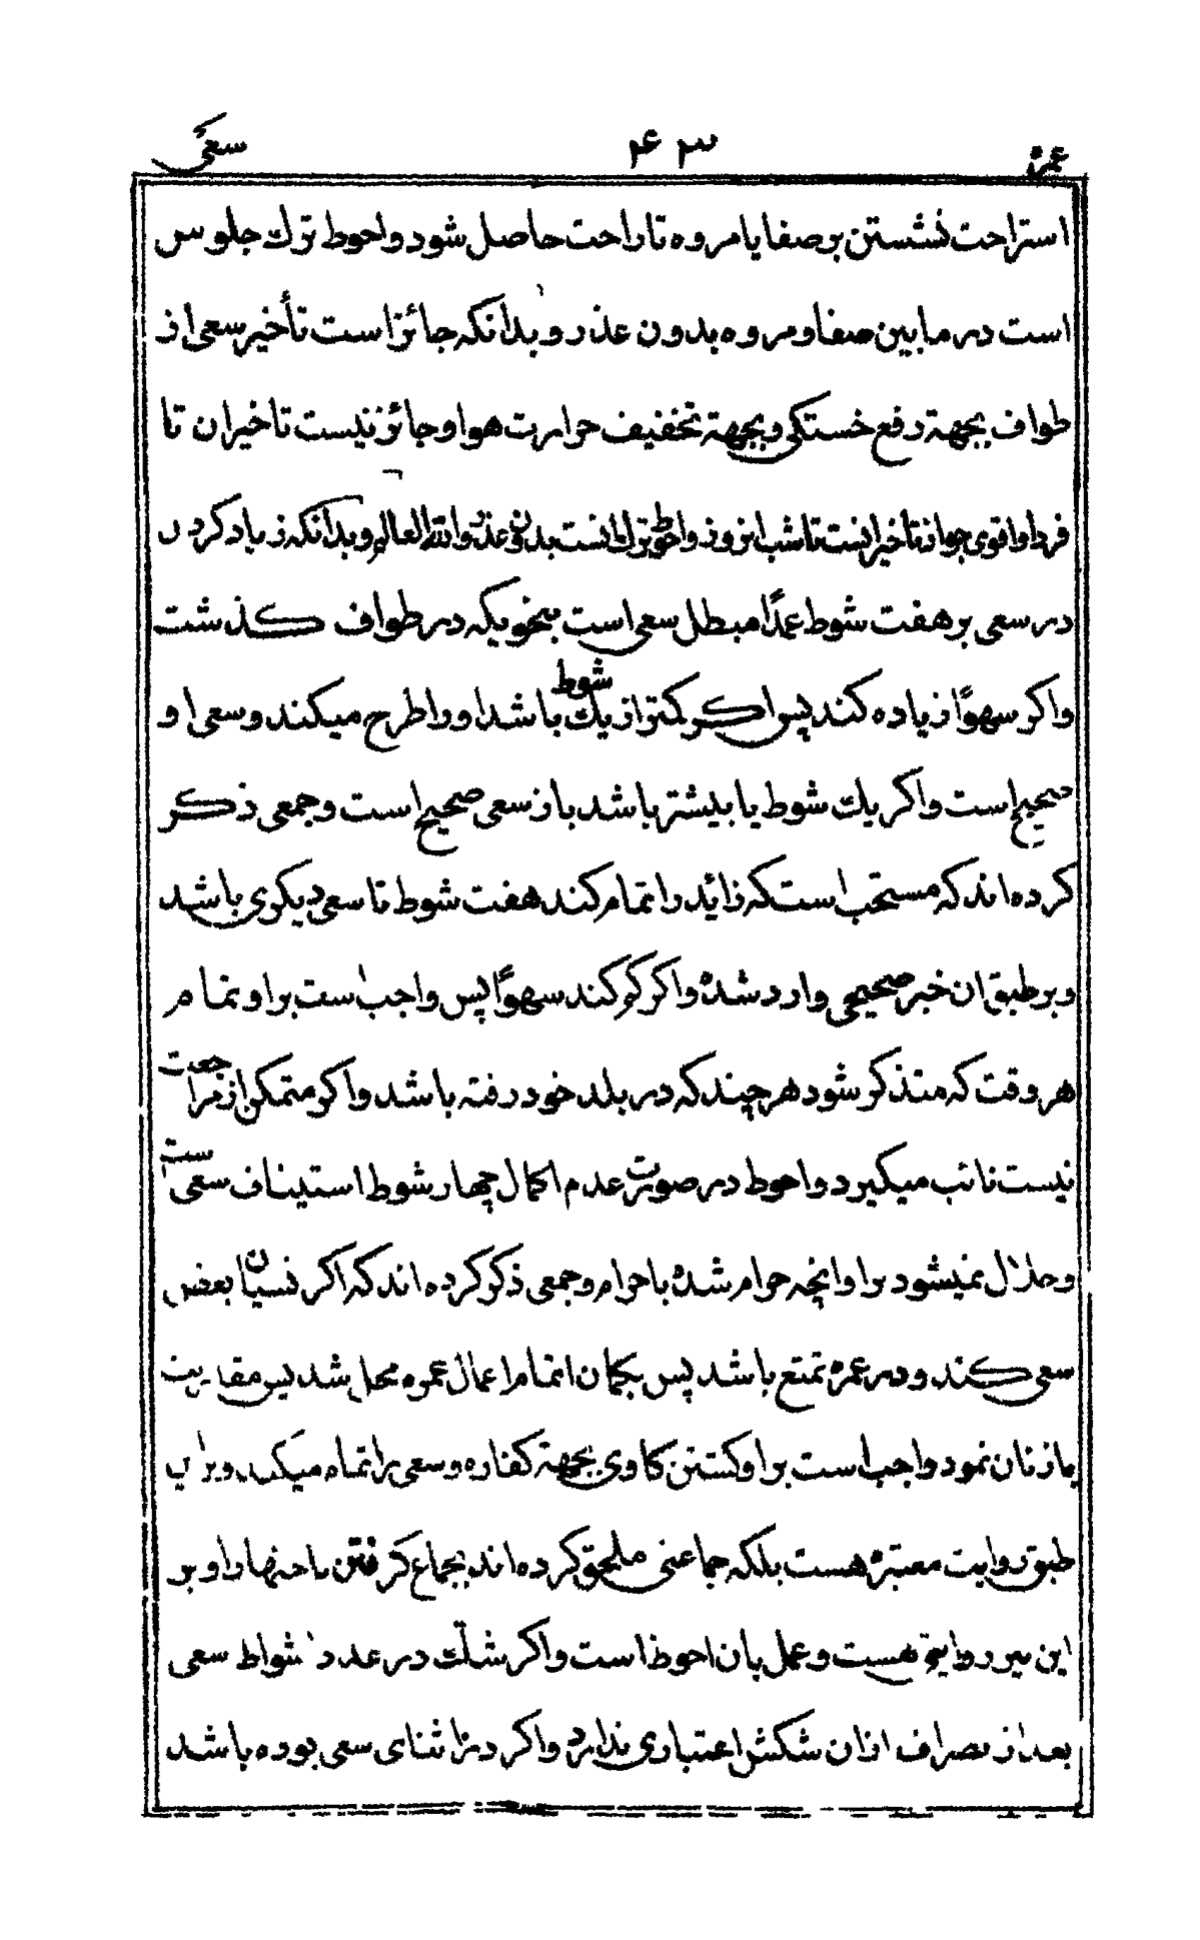 عمره ۴۳ سعی
استراحت نشستن بر صفا یا مروه تا راحت حاصل شود و احوط ترك جلوس
است در مابین صفا و مروه بدون عذر و بدانکه جائز است تأخیر سعی از
طواف بجهة رفع خستکی و بجهة تخفیف حرارت هوا و جائز نیست تاخیر ان تا
فردا و اقوی جواز تأخیر انست تا شب انروز و احوط ترك انست بدون عذر و الله العالم و بدانکه زیاد کردن
در سعی بر هفت شوط عمدًا مبطل سعی است بنحویکه در طواف کذشت
واکر سهوًا زیاده کند پس اکر کمتر از یك شوط باشد او را طرح میکند و سعی او
صحیح است واکر یك شوط یا بیشتر باشد باز سعی صحیح است و جمعی ذکر
کرده اند که مستحب است که زائد را تمام کند هفت شوط تا سعی دیکری باشد
و بر طبق ان خبر صحیحی وارد شده واکر کم کند سهوًا پس واجب است بر او تمام
هر وقت که متذکر شود هر چند که در بلد خود رفته باشد واکر متمکن از مراجعت
نیست نائب میکیرد و احوط در صورت عدم اکمال چهار شوط استیناف سعی است
و حلال نمیشود بر او انچه حرام شده باحرام و جمعی ذکر کرده اند که اکر نسیان بعض
سعی کند و در عمره تمتع باشد پس بکمان اتمام اعمال عمره محل شد پس مقاربت
با زنان نمود واجب است بر او کشتن کاوی بجهة کفاره و سعی را تمام میکند و براین
طبق روایت معتبره هست بلکه جماعتی ملحق کرده اند بجماع کرفتن ناخنها را و بر
این نیز روایة هست و عمل بان احوط است واکر شك در عدد اشواط سعی
بعد از انصراف از ان شکش اعتباری ندارد واکر در اثنای سعی بوده باشد